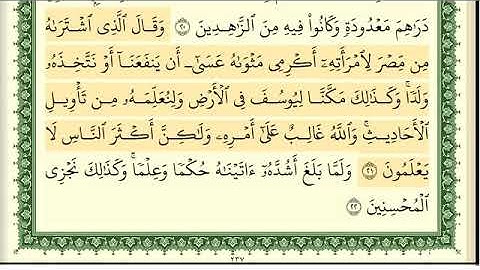 دَرَٰهِمَ مَعۡدُودَةٖ وَكَانُواْ فِيهِ مِنَ ٱلزَّٰهِدِينَ ٢٠ وَقَالَ ٱلَّذِي ٱشۡتَرَىٰهُ
مِن مِّصۡرَ لِٱمۡرَأَتِهِۦٓ أَكۡرِمِي مَثۡوَىٰهُ عَسَىٰٓ أَن يَنفَعَنَآ أَوۡ نَتَّخِذَهُۥ
وَلَدٗاۚ وَكَذَٰلِكَ مَكَّنَّا لِيُوسُفَ فِي ٱلۡأَرۡضِ وَلِنُعَلِّمَهُۥ مِن تَأۡوِيلِ
ٱلۡأَحَادِيثِۚ وَٱللَّهُ غَالِبٌ عَلَىٰٓ أَمۡرِهِۦ وَلَٰكِنَّ أَكۡثَرَ ٱلنَّاسِ لَا
يَعۡلَمُونَ ٢١ وَلَمَّا بَلَغَ أَشُدَّهُۥٓ ءَاتَيۡنَٰهُ حُكۡمٗا وَعِلۡمٗاۚ وَكَذَٰلِكَ نَجۡزِي
ٱلۡمُحۡسِنِينَ ٢٢
٢٣٧